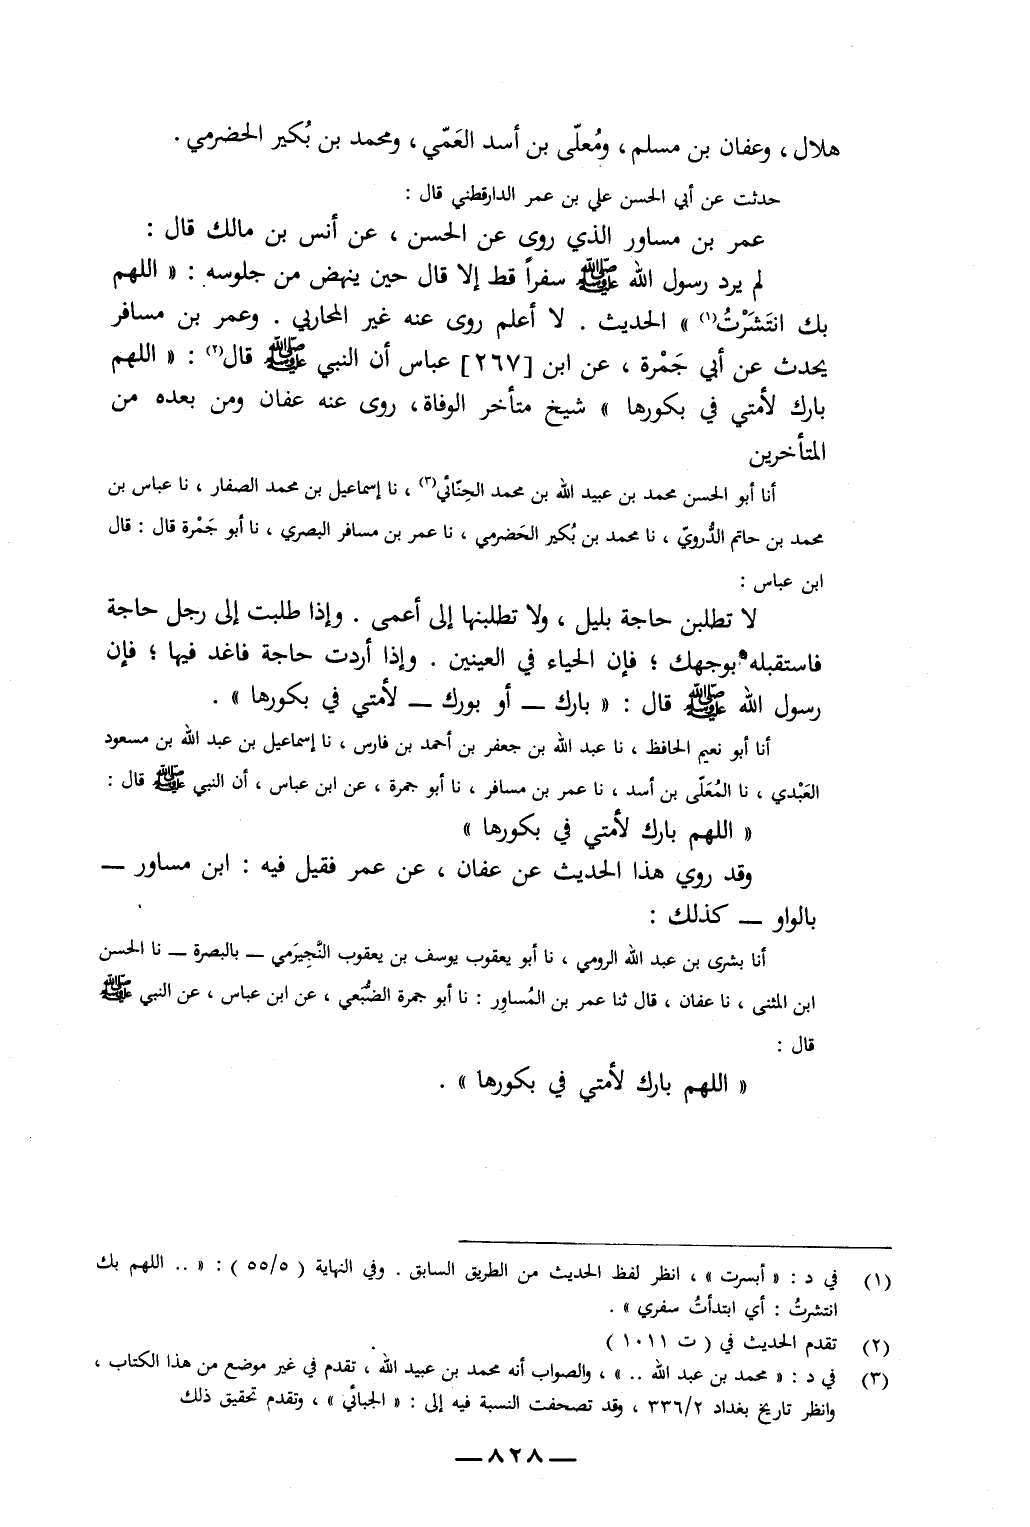 هلال ، وعفان بن مسلم ، ومُعلّى بن أسد العَمّي ، ومحمد بن بُكير الحضرمي .
حدثت عن أبي الحسن علي بن عمر الدارقطني قال :
عمر بن مساور الذي روى عن الحسن ، عن أنس بن مالك قال :
لم يرد رسول الله ﷺ سفراً قط إلا قال حين ينهض من جلوسه : « اللهم
بك انتَشَرْتُ(١) » الحديث . لا أعلم روى عنه غير المحاربي . وعمر بن مسافر
يحدث عن أبي جَمْرة ، عن ابن [٢٦٧] عباس أن النبي ﷺ قال(٢) : « اللهم
بارك لأمتي في بكورها » شيخ متأخر الوفاة، روى عنه عفان ومن بعده من
المتأخرين
أنا أبو الحسن محمد بن عبيد الله بن محمد الحِنّائي(٣) ، نا إسماعيل بن محمد الصفار ، نا عباس بن
محمد بن حاتم الدُّرويّ ، نا محمد بن بُكير الحَضرمي ، نا عمر بن مسافر البصري ، نا أبو جَمْرة قال : قال
ابن عباس :
لا تطلبن حاجة بليل ، ولا تطلبنها إلى أعمى . وإذا طلبت إلى رجل حاجة
فاستقبله بوجهك ؛ فإن الحياء في العينين . وإذا أردت حاجة فاغد فيها ؛ فإن
رسول الله ﷺ قال : « بارك — أو بورك — لأمتي في بكورها » .
أنا أبو نعيم الحافظ ، نا عبد الله بن جعفر بن أحمد بن فارس ، نا إسماعيل بن عبد الله بن مسعود
العَبْدي ، نا المُعَلّى بن أسد ، نا عمر بن مسافر ، نا أبو جمرة ، عن ابن عباس ، أن النبي ﷺ قال :
« اللهم بارك لأمتي في بكورها »
وقد روي هذا الحديث عن عفان ، عن عمر فقيل فيه : ابن مساور —
بالواو — كذلك :
أنا بشرى بن عبد الله الرومي ، نا أبو يعقوب يوسف بن يعقوب النَّجِيرَمي — بالبصرة — نا الحسن
ابن المثنى ، نا عفان ، قال ثنا عمر بن المُساوِر : نا أبو جمرة الضُّبَعي ، عن ابن عباس ، عن النبي ﷺ
قال :
« اللهم بارك لأمتي في بكورها » .
(١) في د : « أبسرت » ، انظر لفظ الحديث من الطريق السابق . وفي النهاية ( ٥٥/٥ ) : « .. اللهم بك
انتشرتُ : أي ابتدأتُ سفري » .
(٢) تقدم الحديث في ( ت ١٠١١ )
(٣) في د : « محمد بن عبد الله .. » ، والصواب أنه محمد بن عبيد الله ، تقدم في غير موضع من هذا الكتاب ،
وانظر تاريخ بغداد ٣٣٦/٢ ، وقد تصحفت النسبة فيه إلى : « الجبائي » ، وتقدم تحقيق ذلك
— ٨٢٨ —